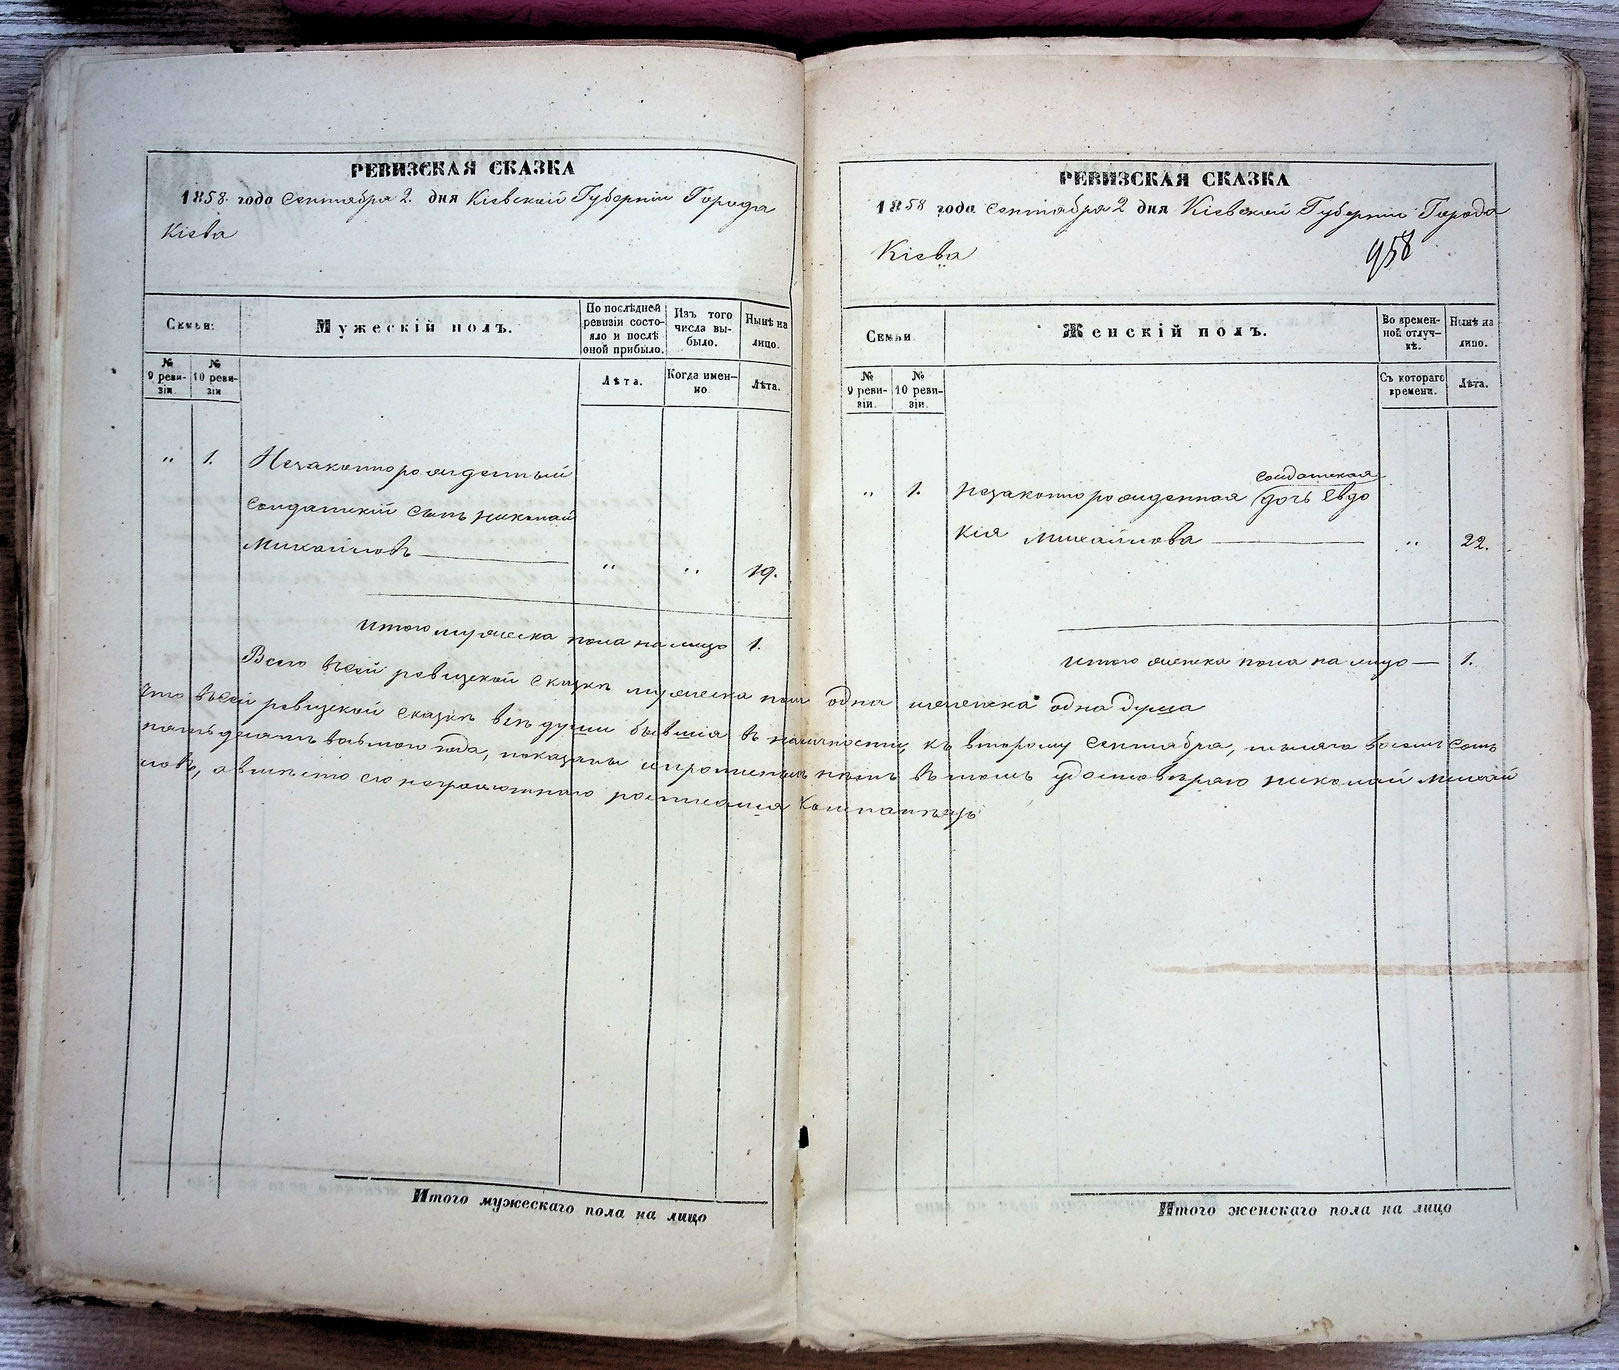 РЕВИЗСКАЯ СКАЗКА
1858 года Сентября 2 дня Кіевской Губерніи Города
Кіева
Семьи.
Мужескій полъ.
По послѣдней ревизіи состояло и послѣ оной прибыло.
Изъ того числа выбыло.
Нынѣ на лицо.
№ 9 ревизіи.
№ 10 ревизіи
Лѣта.
Когда именно.
Лѣта.
" 1. Незаконнорожденный
Солдатскій сынъ Николай
Михайловъ " " 19.
Итого мужеска пола на лицо 1.
РЕВИЗСКАЯ СКАЗКА
1858 года Сентября 2 дня Кіевской Губерніи Города
Кіева
958
Семьи.
Женскій полъ.
Во временной отлучкѣ.
Нынѣ на лицо.
№ 9 ревизіи.
№ 10 ревизіи.
Съ котораго времени.
Лѣта.
солдатская
" 1. Незаконнорожденная дочь Евдо
кія Михайлова " 22.
Итого женска пола на лицо — 1.
Всего въ сей ревизской сказкѣ мужеска пола одна женска одна душа
что въ сей ревизской сказкѣ всѣ души бывшія въ наличности, къ второму Сентября, тысяча восемь сотъ
пятьдесятъ восьмого года, показаны и прописныхъ нѣтъ въ томъ удостовѣряю Николай Михай
ловъ, а вмѣсто его неграмотнаго росписался
Итого мужескаго пола на лицо
Итого женскаго пола на лицо